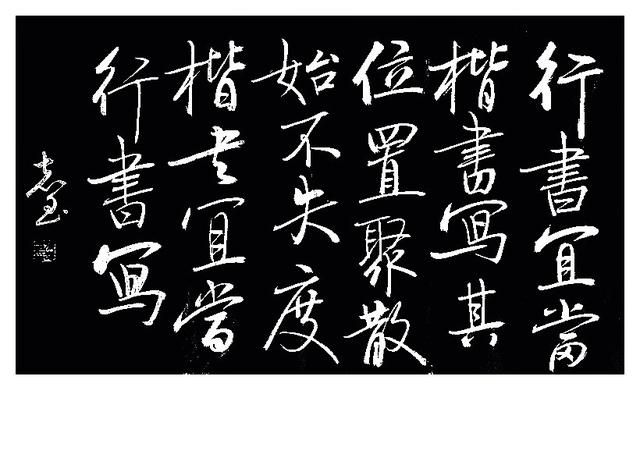 行書宜當
楷書寫其
位置聚散
始不失度
楷書宜當
行書寫